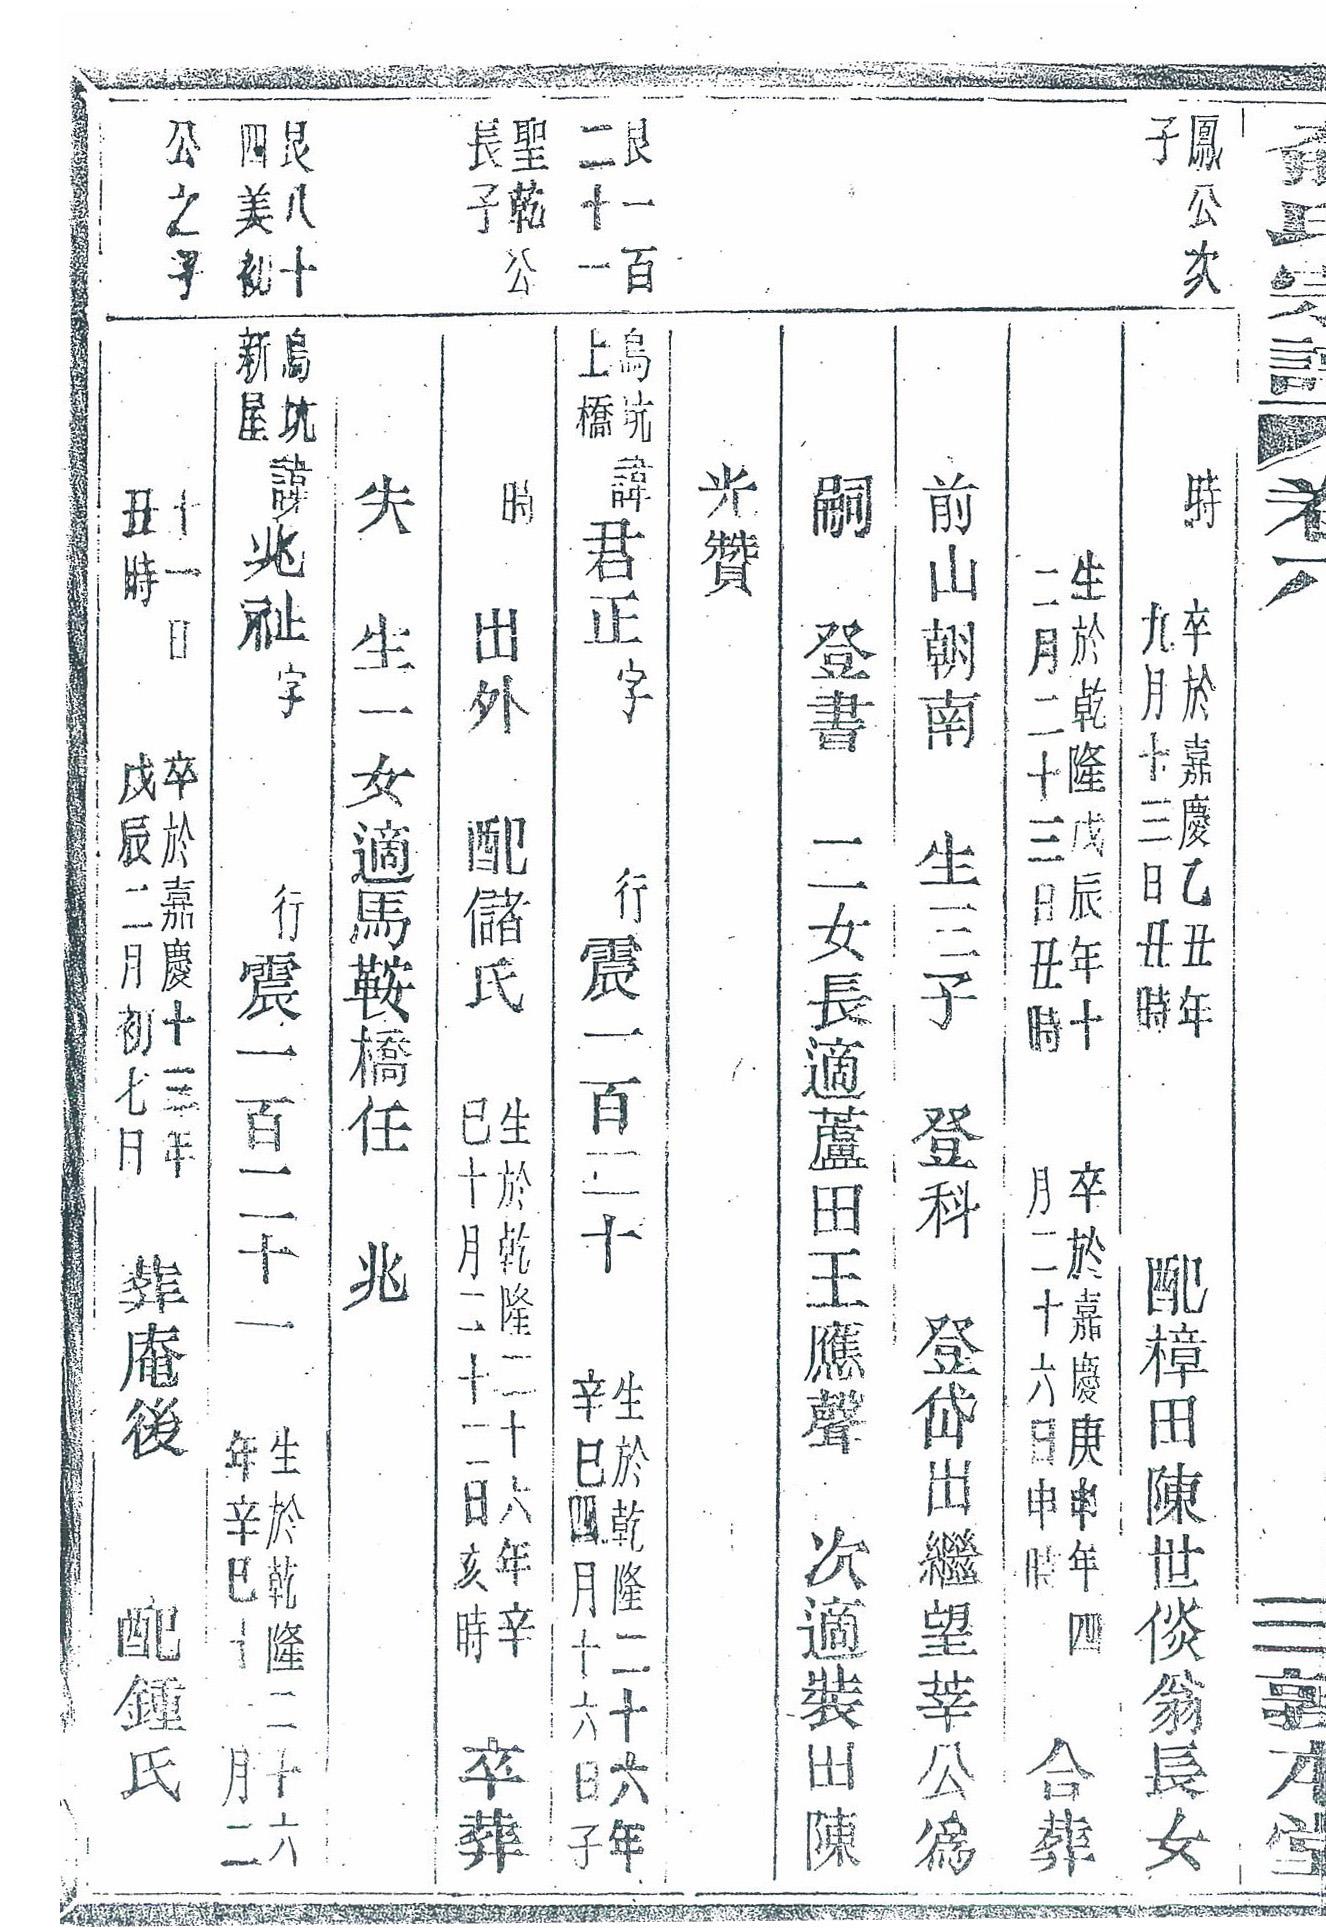 氏宗譜 卷六 三 敦本堂
鳳公次
子
時
卒於嘉慶乙丑年
九月十三日丑時
配樟田陳世倓翁長女
生於乾隆戊辰年十
二月二十三日丑時
卒於嘉慶庚申年四
月二十六日申時
合葬
前山朝南 生三子 登科 登岱出繼望莘公爲
嗣 登書 二女長適蘆田王應聲 次適裝出陳
光贊
艮一百
二十一
烏坑
上橋
諱君正字 行震一百二十
生於乾隆二十六年
辛巳四月十六日子
聖乾公
長子
時 出外 配儲氏
生於乾隆二十六年辛
巳十月二十二日亥時
卒葬
失 生一女適馬鞍橋任 兆
艮八十
四美初
烏坑
新屋
諱兆祉字 行震一百二十一
生於乾隆二十六
年辛巳十月二
公之子
十一日
丑時
卒於嘉慶十三年
戊辰二月初七日
葬庵後 配鍾氏